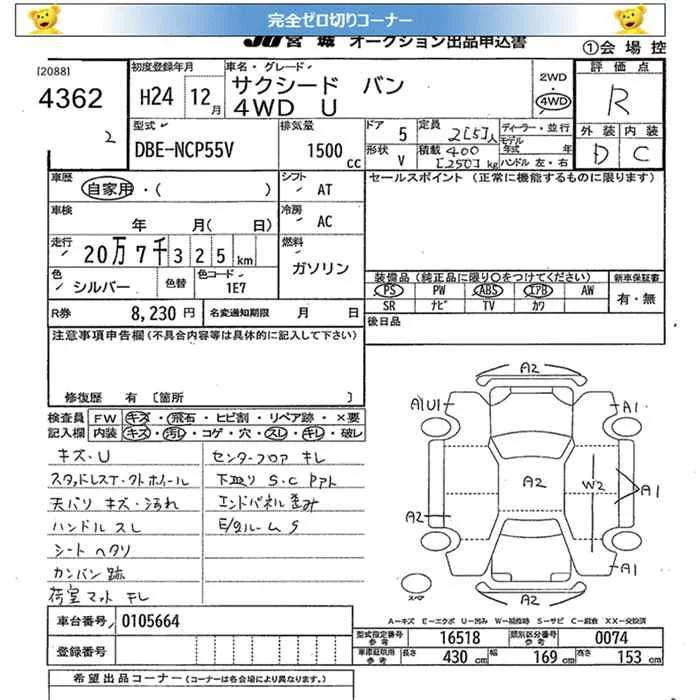 完全ゼロ切りコーナー
JU 宮 城 オークション出品申込書
①会 場 控
[2088]
4362
2
初度登録年月
H24 12月
車名・グレード
サクシード バン
4WD U
2WD
4WD
評 価 点
R
外 装 内 装
D C
型式
DBE-NCP55V
排気量
1500 cc
ドア 5
形状 V
定員 2[5]人
積載 400 [250]kg
ディーラー・並行
モデル年式 年
ハンドル 左・右
車歴
自家用・( )
シフト AT
セールスポイント (正常に機能するものに限ります)
車検
年 月( 日)
冷房 AC
走行
20万7千325km
燃料
ガソリン
色
シルバー
色替
色コード
1E7
装備品 (純正品に限り○をつけてください)
PS PW ABS エアB AW
SR ナビ TV カワ
新車保証書
有・無
R券 8,230円
名変通知期限 月 日
後日品
注意事項申告欄(不具合内容等は具体的に記入して下さい)
修復歴 有 [箇所 ]
検査員記入欄
FW キズ・飛石・ヒビ割・リペア跡・×要
内装 キズ・汚れ・コゲ・穴・スレ・キレ・破レ
キズ・U
スタッドレスT・クトホイール
天バリ キズ・汚れ
ハンドル スレ
シート ヘタリ
カンバン跡
荷室マット キレ
センターフロア キレ
下廻り S・C P外
エンドパネル歪み
E/gルーム S
A2
A1U1
A1
A2
W2
A1
A2
A1
A2
スペア
A=キズ E=エクボ U=凹み W=補修跡 S=サビ C=腐食 XX=交換済
車台番号 0105664
登録番号
型式指定番号 参考 16518
類別区分番号 参考 0074
車庫証明用 参考
長さ 430 cm
幅 169 cm
高さ 153 cm
希 望 出 品 コ ー ナ ー (コーナーは各会場により異なります。)